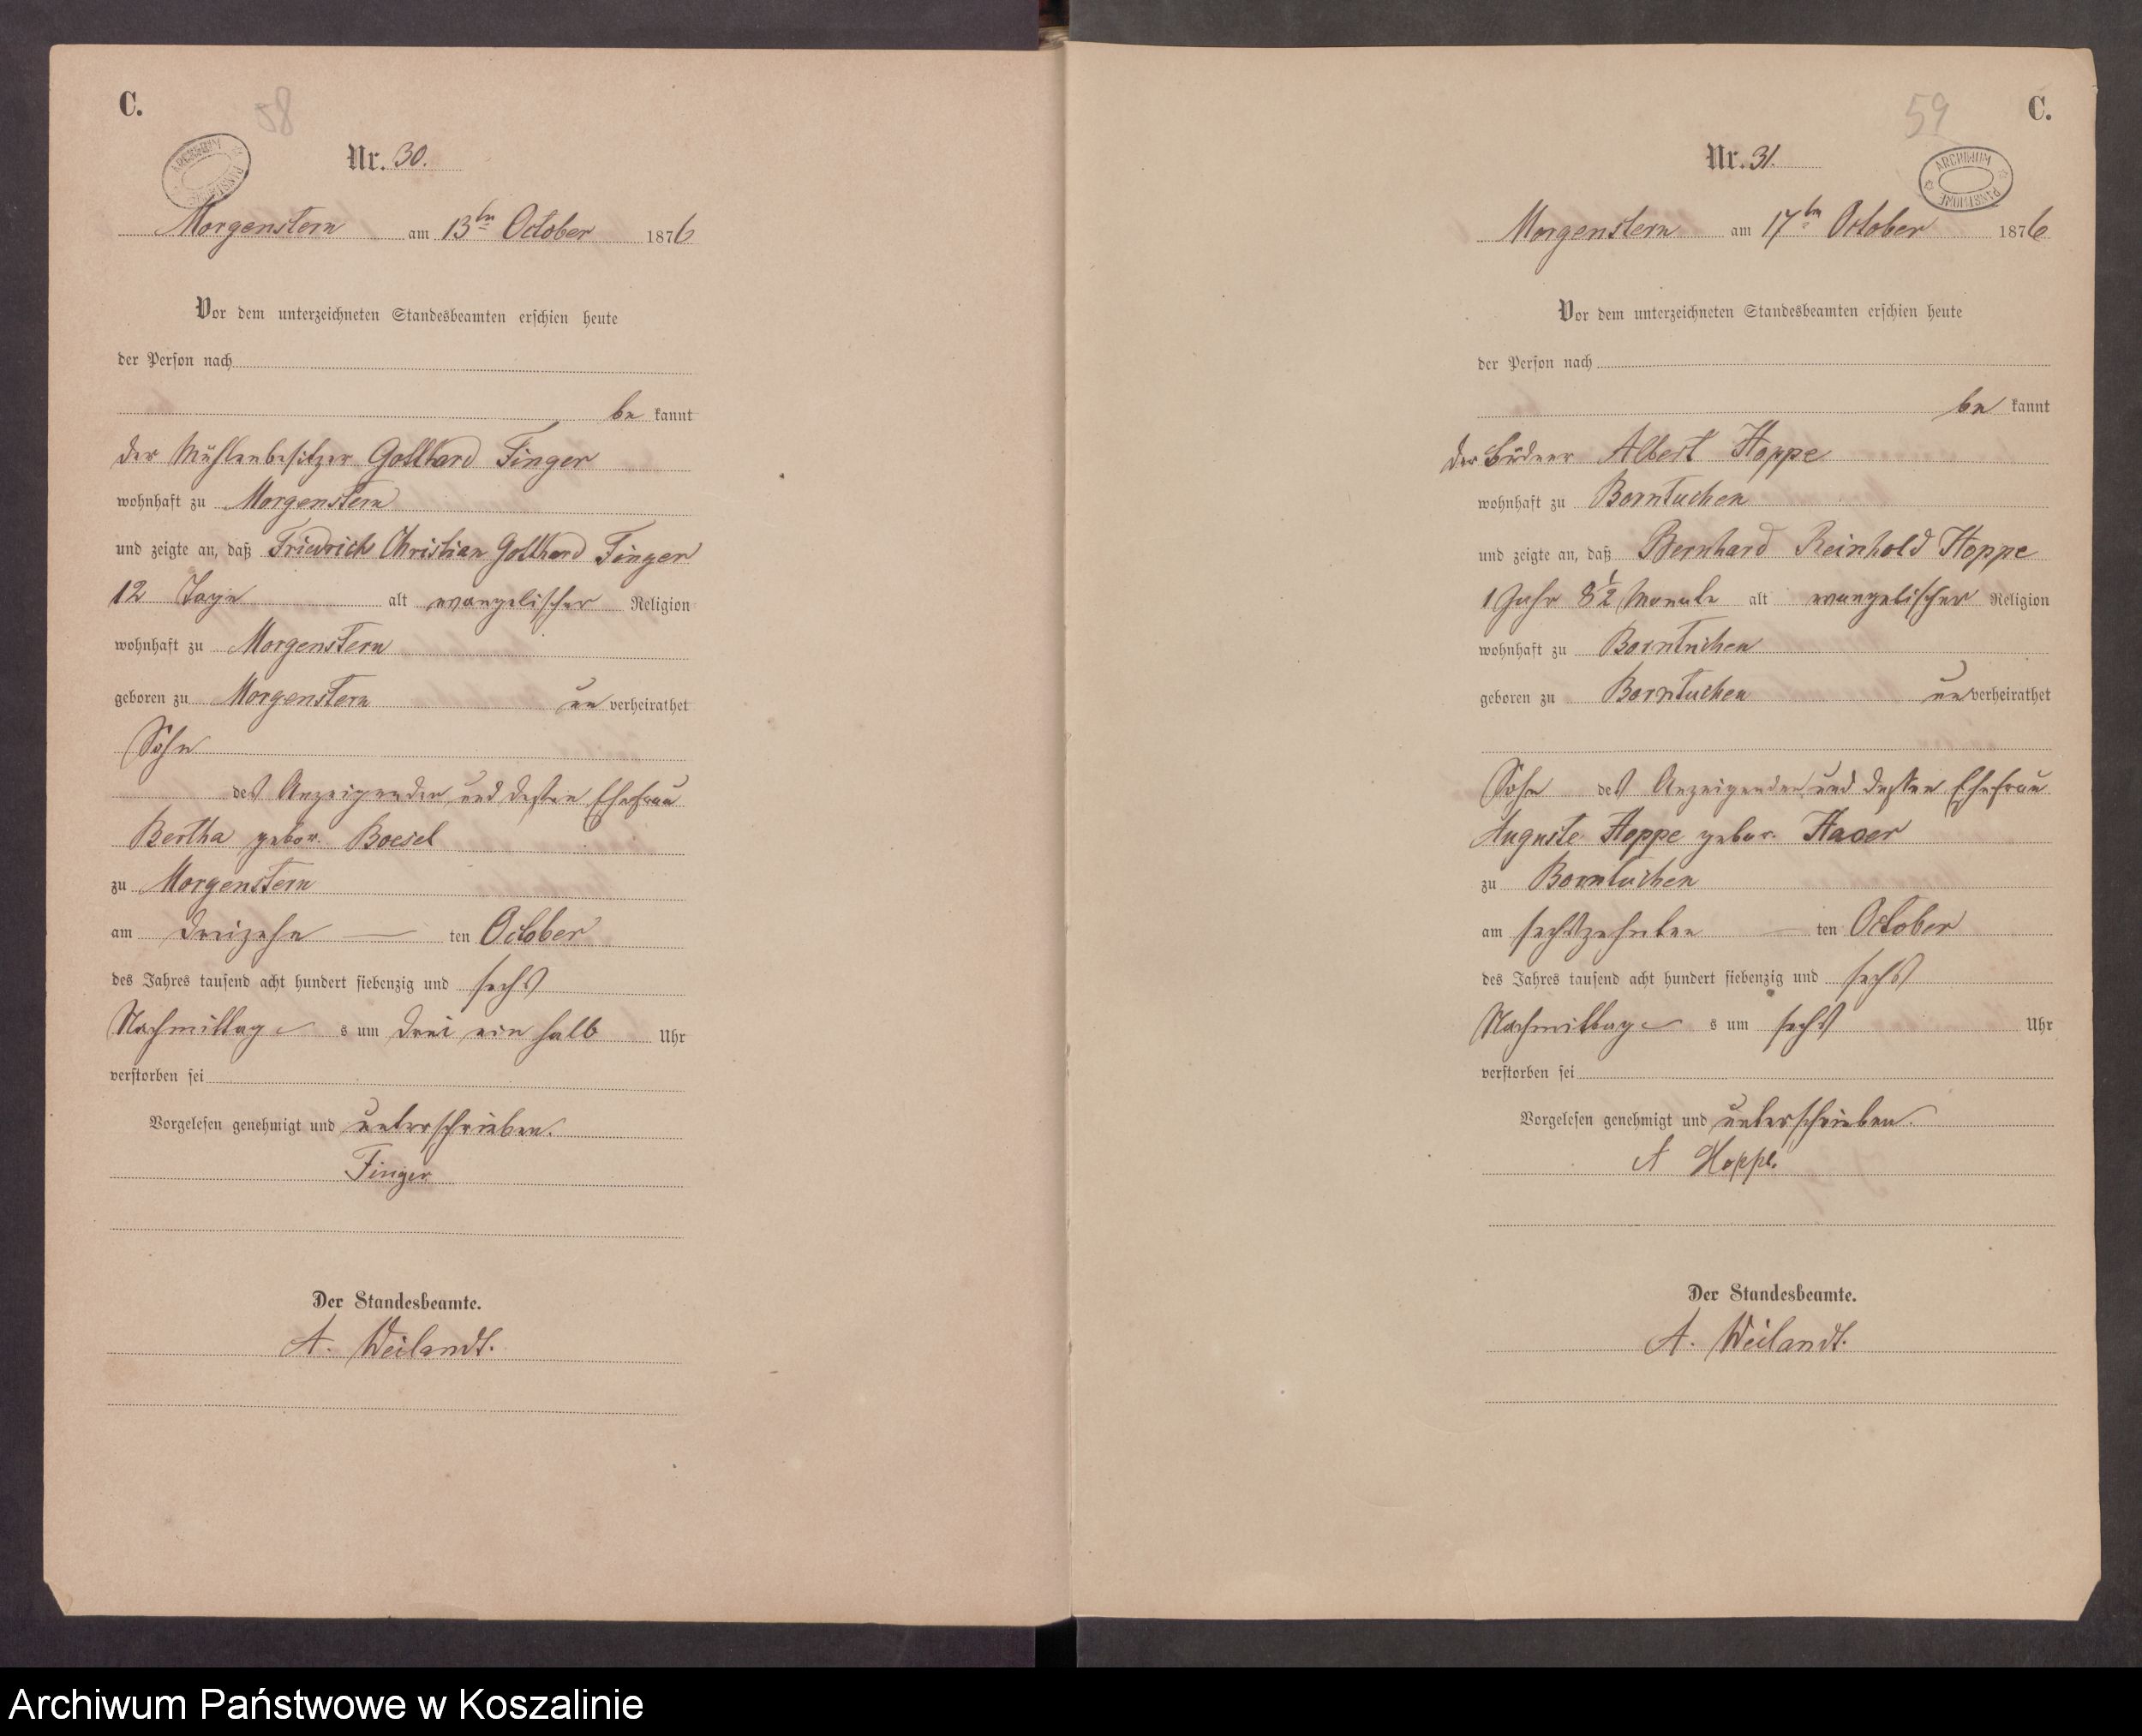 C.
58
ARCHIWUM PAŃSTWOWE
Nr. 30.
Morgenstern am 13ten October 1876
Vor dem unterzeichneten Standesbeamten erschien heute
der Person nach
be kannt
der Mühlenbesitzer Gotthard Finger
wohnhaft zu Morgenstern
und zeigte an, daß Friedrich Christian Gotthard Finger
12 Tage alt evangelischer Religion
wohnhaft zu Morgenstern
geboren zu Morgenstern un verheirathet
Sohn
des Anzeigenden und dessen Ehefrau
Bertha gebor. Boesel
zu Morgenstern
am dreizehn — ten October
des Jahres tausend acht hundert siebenzig und sechs
Nachmittage s um drei ein halb Uhr
verstorben sei
Vorgelesen genehmigt und unterschrieben.
Finger
Der Standesbeamte.
A. Weilandt.
59
C.
Nr. 31.
ARCHIWUM PAŃSTWOWE
Morgenstern am 17ten October 1876
Vor dem unterzeichneten Standesbeamten erschien heute
der Person nach
be kannt
der Büdner Albert Hoppe
wohnhaft zu Borntuchen
und zeigte an, daß Bernhard Reinhold Hoppe
1 Jahr 8 1/2 Monate alt evangelischer Religion
wohnhaft zu Borntuchen
geboren zu Borntuchen un verheirathet
Sohn des Anzeigenden und dessen Ehefrau
Auguste Hoppe gebor.
zu Borntuchen
am sechszehnten — ten October
des Jahres tausend acht hundert siebenzig und sechs
Nachmittage s um sechs Uhr
verstorben sei
Vorgelesen genehmigt und unterschrieben.
A Hoppe.
Der Standesbeamte.
A. Weilandt.
Archiwum Państwowe w Koszalinie